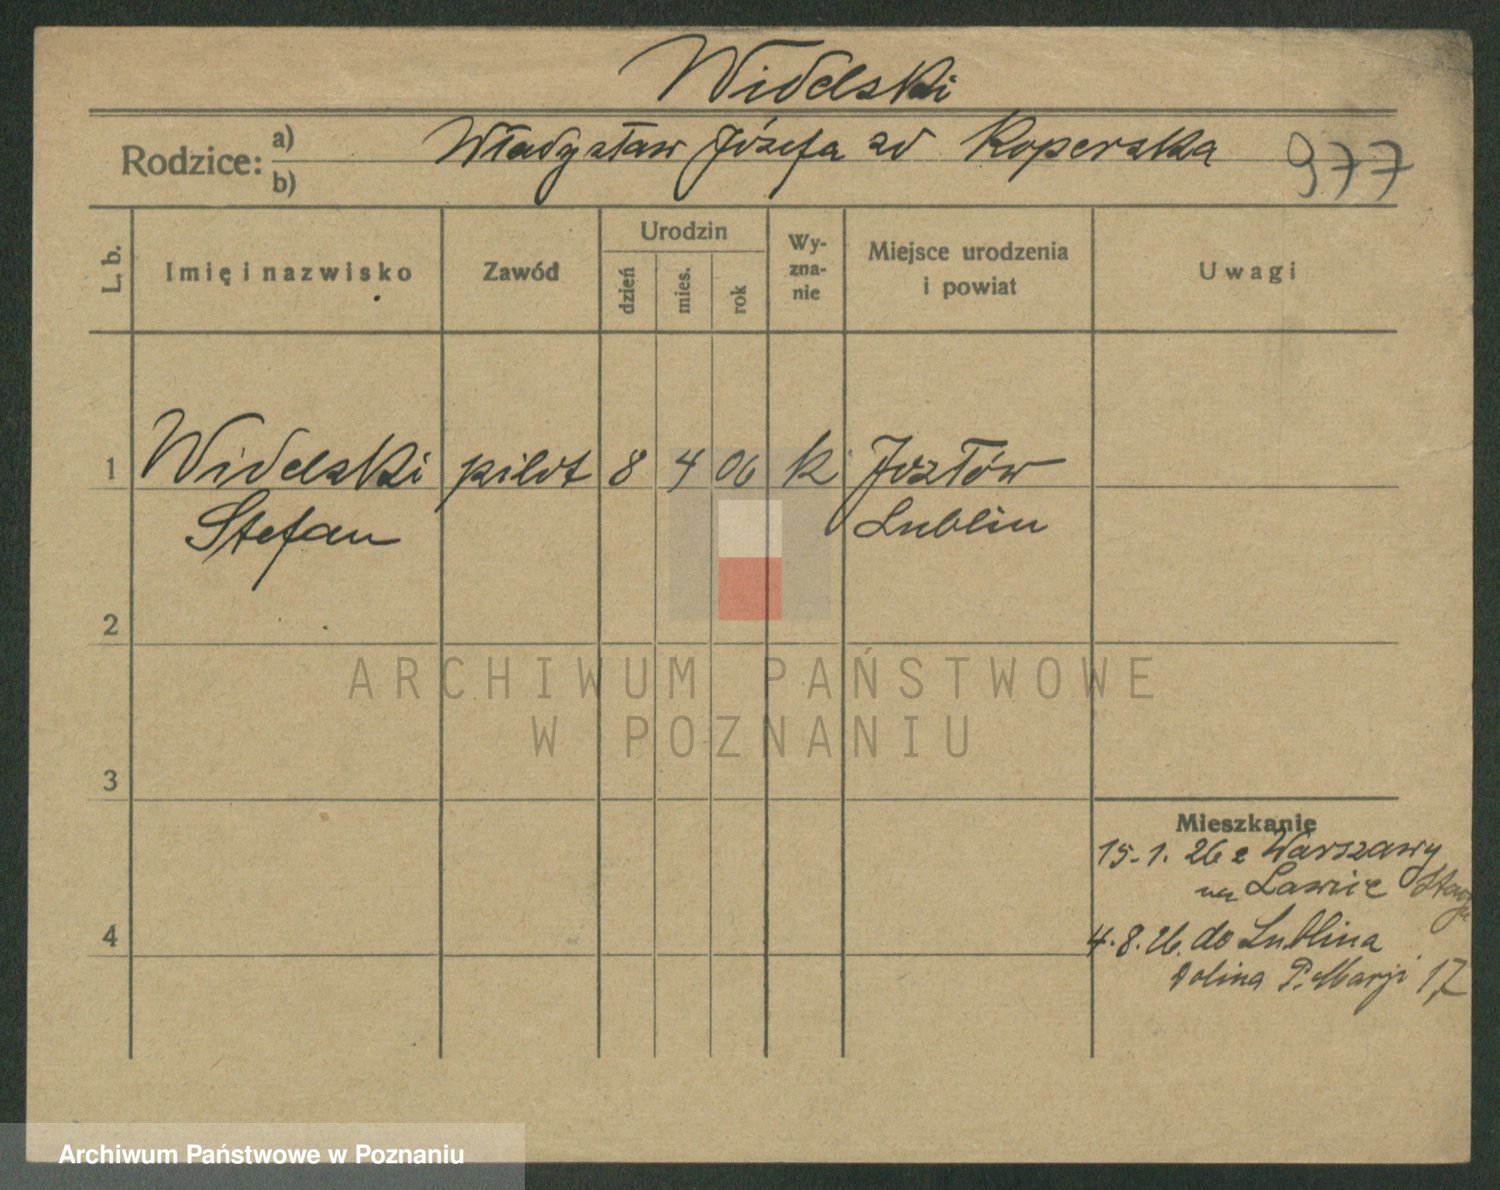 Widelski
Rodzice: a) b) Władysław Józefa zd Koperska 977
L. b. Imię i nazwisko Zawód Urodzin dzień mies. rok Wy-zna-nie Miejsce urodzenia i powiat Uwagi
1 Widelski pilot 8 4 06 k Józłów
Stefan Lublin
2
ARCHIWUM PAŃSTWOWE
W POZNANIU
3
Mieszkanie
15.1. 26 z Warszawy
na Ławicę
4
4.8.26. do Lublina
dolina P. Marji 17
Archiwum Państwowe w Poznaniu